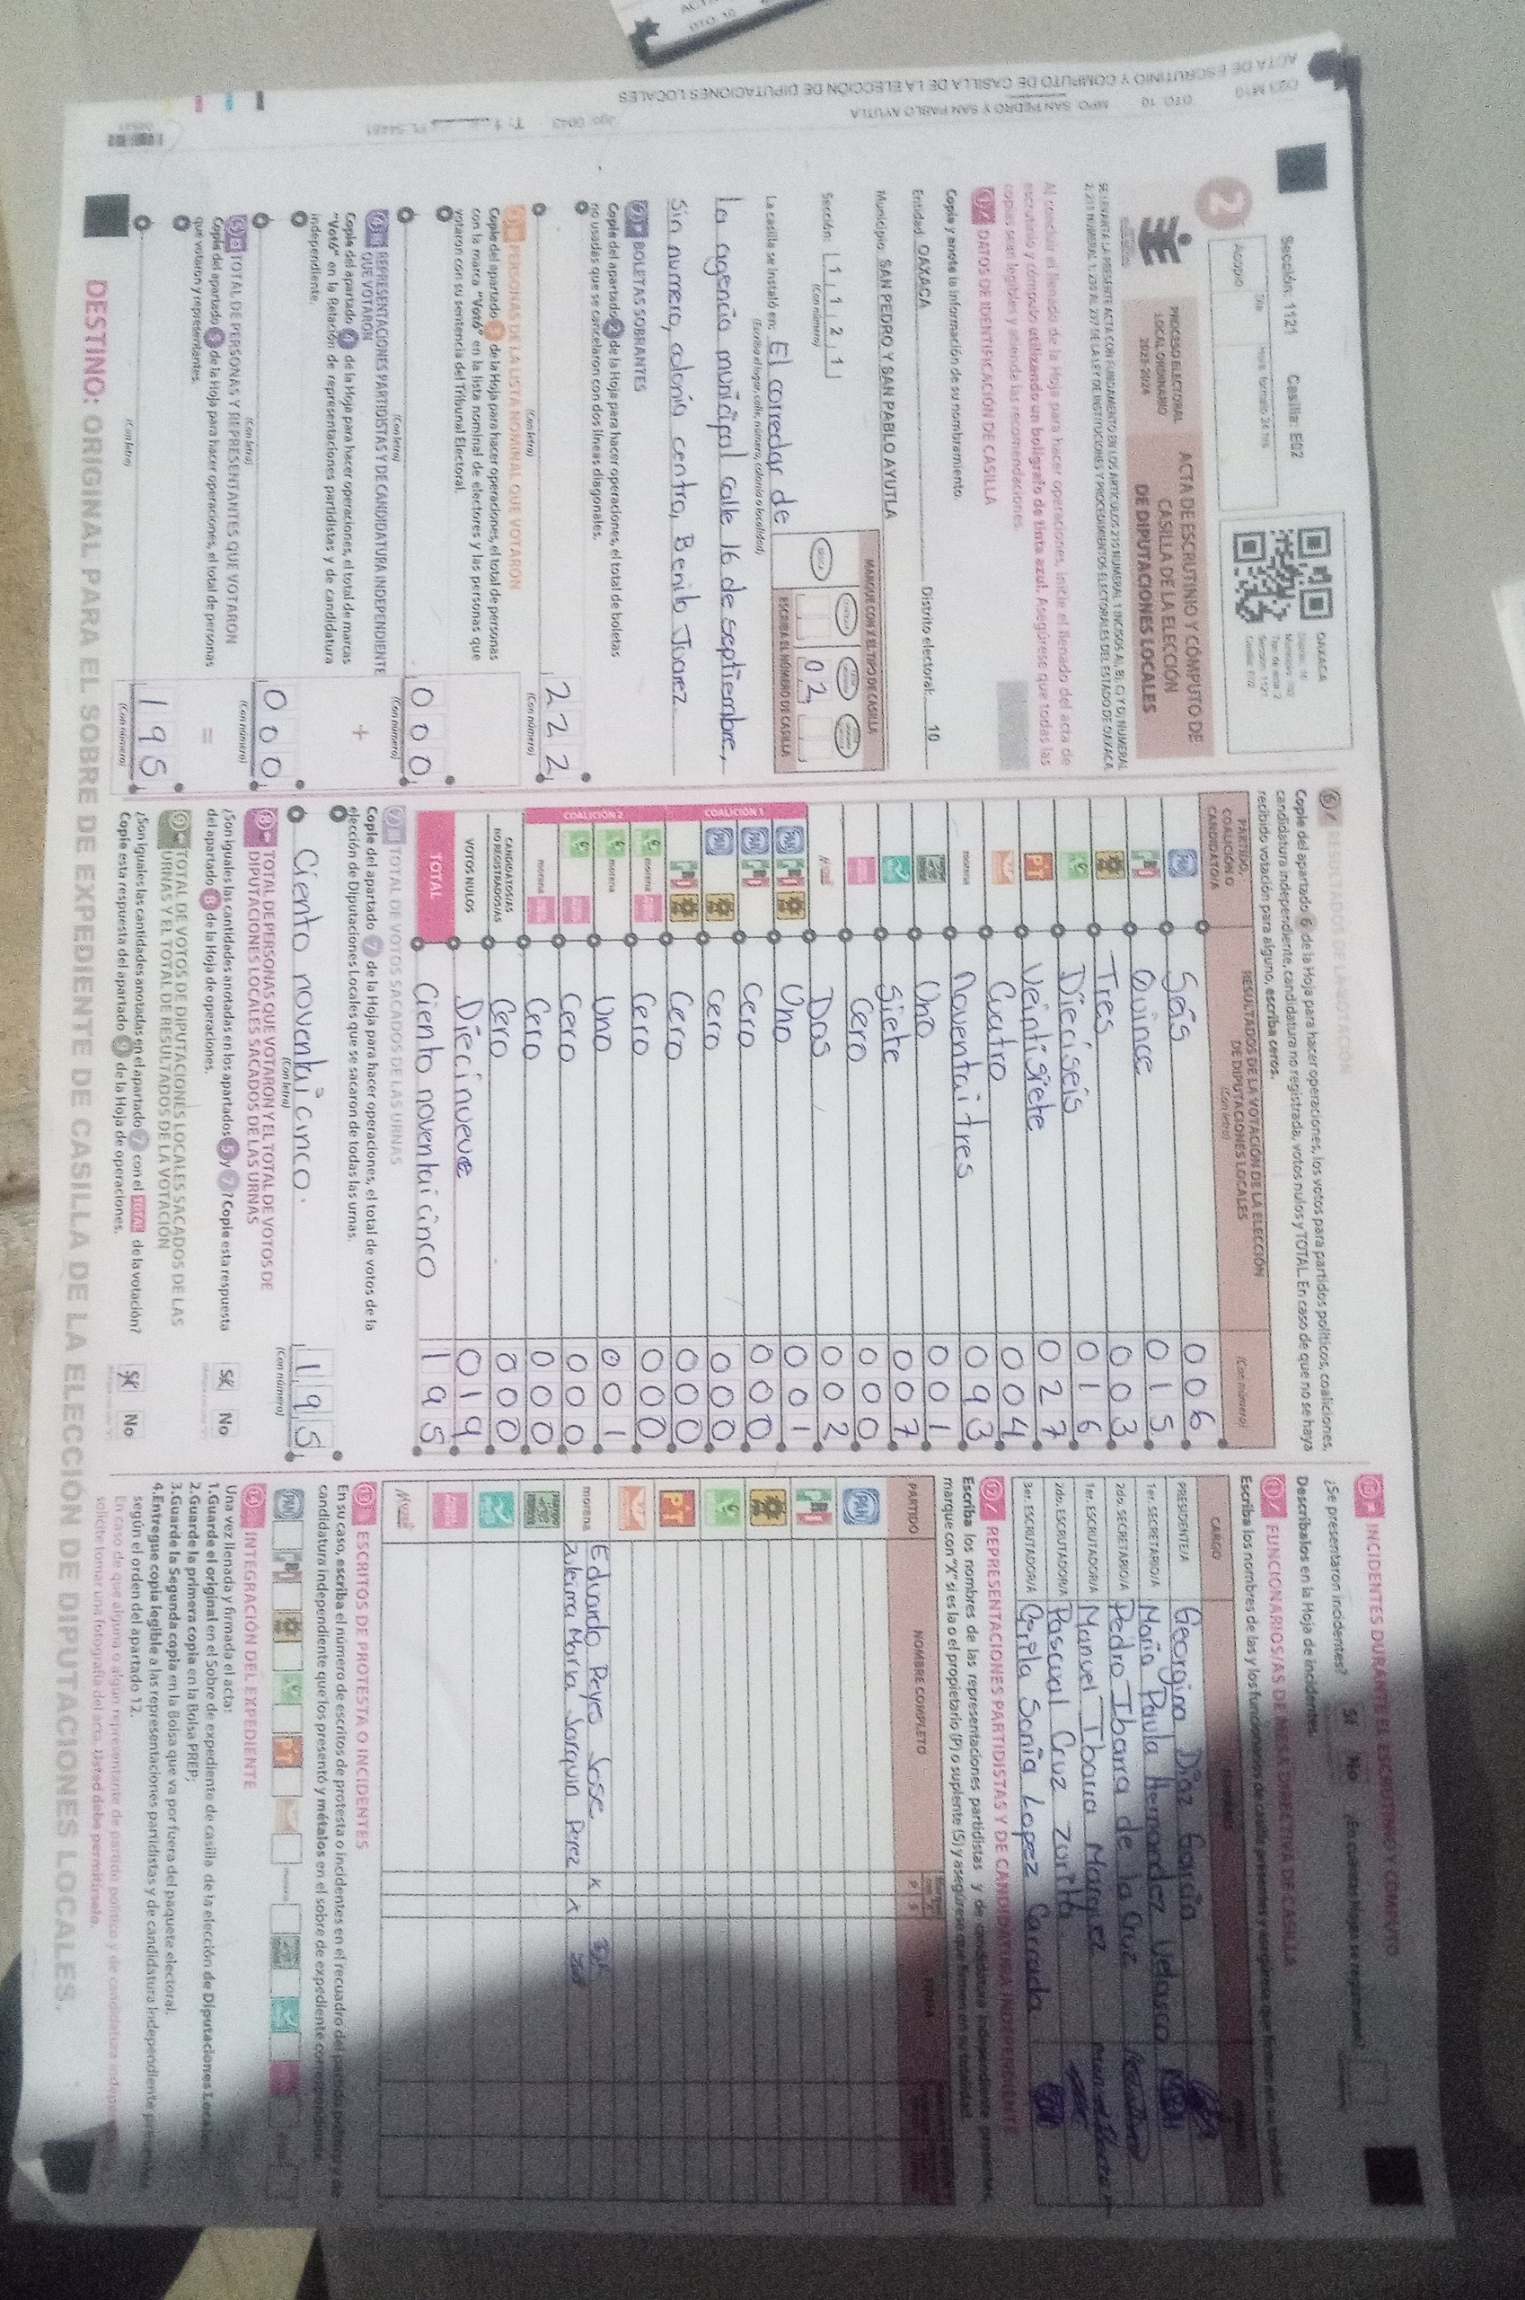 Sección: 1121 Casilla: E02
Acopio
Día
Hora, formato 24 hrs
OAXACA
2
PROCESO ELECTORAL
LOCAL ORDINARIO
2023-2024
ACTA DE ESCRUTINIO Y CÓMPUTO DE
CASILLA DE LA ELECCIÓN
DE DIPUTACIONES LOCALES
Al concluir el llenado de la Hoja para hacer operaciones, inicie el llenado del acta de
escrutinio y cómputo utilizando un bolígrafo de tinta azul. Asegúrese que todas las
copias sean legibles y atienda las recomendaciones.
1 DATOS DE IDENTIFICACIÓN DE CASILLA
Copie y anote la información de su nombramiento.
Entidad: OAXACA Distrito electoral: 10
Municipio: SAN PEDRO Y SAN PABLO AYUTLA
Sección: 1 1 2 1
(Con número)
MARQUE CON X EL TIPO DE CASILLA
02
ESCRIBA EL NÚMERO DE CASILLA
La casilla se instaló en: El corredor de
(Escriba el lugar, calle, número, colonia o localidad)
la agencia municipal calle 16 de septiembre,
Sin numero, colonia centro, Benito Juarez
2 BOLETAS SOBRANTES
Copie del apartado 2 de la Hoja para hacer operaciones, el total de boletas
no usadas que se cancelaron con dos líneas diagonales.
(Con letra)
222
(Con número)
3 PERSONAS DE LA LISTA NOMINAL QUE VOTARON
Copie del apartado 3 de la Hoja para hacer operaciones, el total de personas
con la marca "Votó" en la lista nominal de electores y las personas que
votaron con su sentencia del Tribunal Electoral.
(Con letra)
000
(Con número)
+
4 REPRESENTACIONES PARTIDISTAS Y DE CANDIDATURA INDEPENDIENTE
QUE VOTARON
Copie del apartado 4 de la Hoja para hacer operaciones, el total de marcas
"Votó" en la Relación de representaciones partidistas y de candidatura
independiente.
(Con letra)
000
(Con número)
=
5 TOTAL DE PERSONAS Y REPRESENTANTES QUE VOTARON
Copie del apartado 5 de la Hoja para hacer operaciones, el total de personas
que votaron y representantes.
(Con letra)
195
(Con número)
6 RESULTADOS DE LA VOTACIÓN
Copie del apartado 6 de la Hoja para hacer operaciones, los votos para partidos políticos, coaliciones,
candidatura independiente, candidatura no registrada, votos nulos y TOTAL. En caso de que no se haya
recibido votación para alguno, escriba ceros.
PARTIDO,
COALICIÓN O
CANDIDATO/A
RESULTADOS DE LA VOTACIÓN DE LA ELECCIÓN
DE DIPUTACIONES LOCALES
(Con letra)
(Con número)
PAN Seis 006
PRI Quince 015
Tres 003
Dieciseis 016
PT Veintisiete 027
Cuatro 004
morena Noventai tres 093
Uno 001
Siete 007
Cero 000
Dos 002
COALICIÓN 1
PAN PRI Uno 001
PAN PRI Cero 000
PAN Cero 000
PRI Cero 000
COALICIÓN 2
morena Cero 000
morena Uno 001
Cero 000
morena Cero 000
CANDIDATOS/AS
NO REGISTRADOS/AS Cero 000
VOTOS NULOS Diecinueve 019
TOTAL Ciento noventai cinco 195
7 TOTAL DE VOTOS SACADOS DE LAS URNAS
Copie del apartado 7 de la Hoja para hacer operaciones, el total de votos de la
elección de Diputaciones Locales que se sacaron de todas las urnas.
Ciento noventai cinco. 195
(Con letra) (Con número)
8 TOTAL DE PERSONAS QUE VOTARON Y EL TOTAL DE VOTOS DE
DIPUTACIONES LOCALES SACADOS DE LAS URNAS
¿Son iguales las cantidades anotadas en los apartados 5 y 7? Copie esta respuesta
del apartado 8 de la Hoja de operaciones.
Sí No
9 TOTAL DE VOTOS DE DIPUTACIONES LOCALES SACADOS DE LAS
URNAS Y EL TOTAL DE RESULTADOS DE LA VOTACIÓN
¿Son iguales las cantidades anotadas en el apartado 7 con el TOTAL de la votación?
Copie esta respuesta del apartado 9 de la Hoja de operaciones.
Sí No
10 INCIDENTES DURANTE EL ESCRUTINIO Y CÓMPUTO
¿Se presentaron incidentes? Sí No ¿En cuántas hojas se registraron?
Descríbalos en la Hoja de incidentes.
11 FUNCIONARIOS/AS DE MESA DIRECTIVA DE CASILLA
Escriba los nombres de las y los funcionarios de casilla presentes y asegúrese que firmen en su totalidad
CARGO
PRESIDENTE/A Georgina Diaz Garcia
1er. SECRETARIO/A Maria Paula Hernandez Velasco
2do. SECRETARIO/A Pedro Ibarra de la Cruz
1er. ESCRUTADOR/A Manuel Ibarra Marquez
2do. ESCRUTADOR/A Pascual Cruz Zorita
3er. ESCRUTADOR/A Carisla Sonia Lopez Carrada
12 REPRESENTACIONES PARTIDISTAS Y DE CANDIDATURA INDEPENDIENTE
Escriba los nombres de las representaciones partidistas y de candidatura independiente presentes,
marque con "X" si es la o el propietario (P) o suplente (S) y asegúrese que firmen en su totalidad
PARTIDO NOMBRE COMPLETO
PAN
PRI
PT
morena Eduardo Reyes Jose x
Maria Joaquin Perez x
13 ESCRITOS DE PROTESTA O INCIDENTES
En su caso, escriba el número de escritos de protesta o incidentes en el recuadro del partido político y de
candidatura independiente que los presentó y métalos en el sobre de expediente correspondiente.
14 INTEGRACIÓN DEL EXPEDIENTE
Una vez llenada y firmada el acta:
1.Guarde el original en el Sobre de expediente de casilla de la elección de Diputaciones Locales
2.Guarde la primera copia en la Bolsa PREP;
3.Guarde la Segunda copia en la Bolsa que va por fuera del paquete electoral.
4.Entregue copia legible a las representaciones partidistas y de candidatura independiente presentes
según el orden del apartado 12.
solicite tomar una fotografía del acta. Usted debe permitírselo.
DESTINO: ORIGINAL PARA EL SOBRE DE EXPEDIENTE DE CASILLA DE LA ELECCIÓN DE DIPUTACIONES LOCALES.
ACTA DE ESCRUTINIO Y COMPUTO DE CASILLA DE LA ELECCIÓN DE DIPUTACIONES LOCALES
DTO. 10 MPO SAN PEDRO Y SAN PABLO AYUTLA